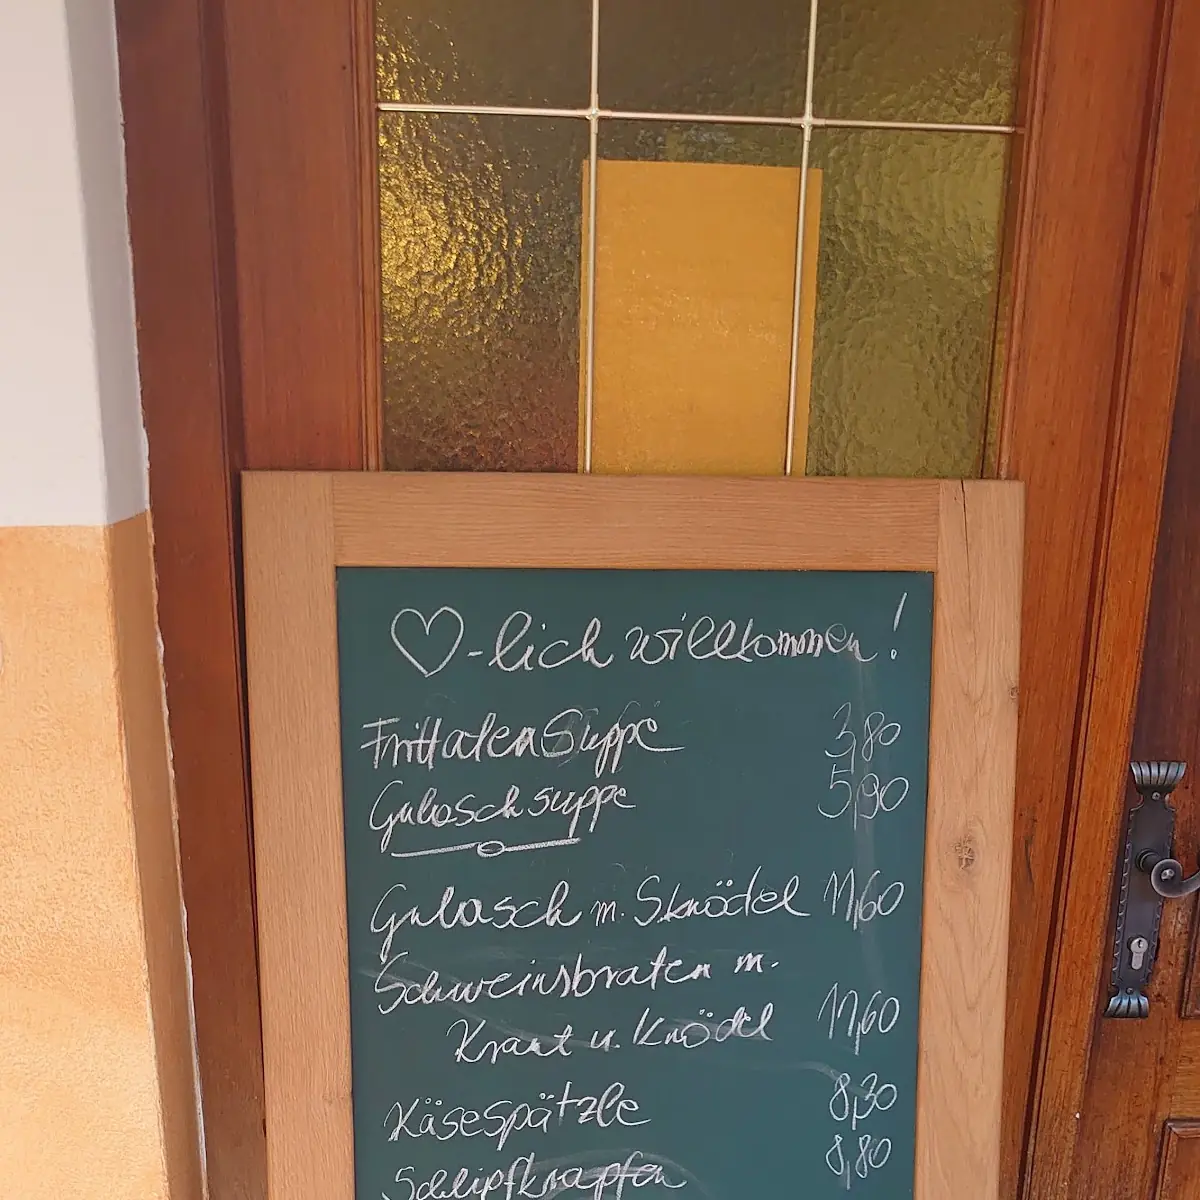 ♡-lich willkommen!
Frittaten Suppe 3,80
Gulaschsuppe 5,90
Gulasch m. S.knödel 11,60
Schweinsbraten m.
Kraut u. Knödel 11,60
Käsespätzle 8,30
Schlipfkrapfen 8,80